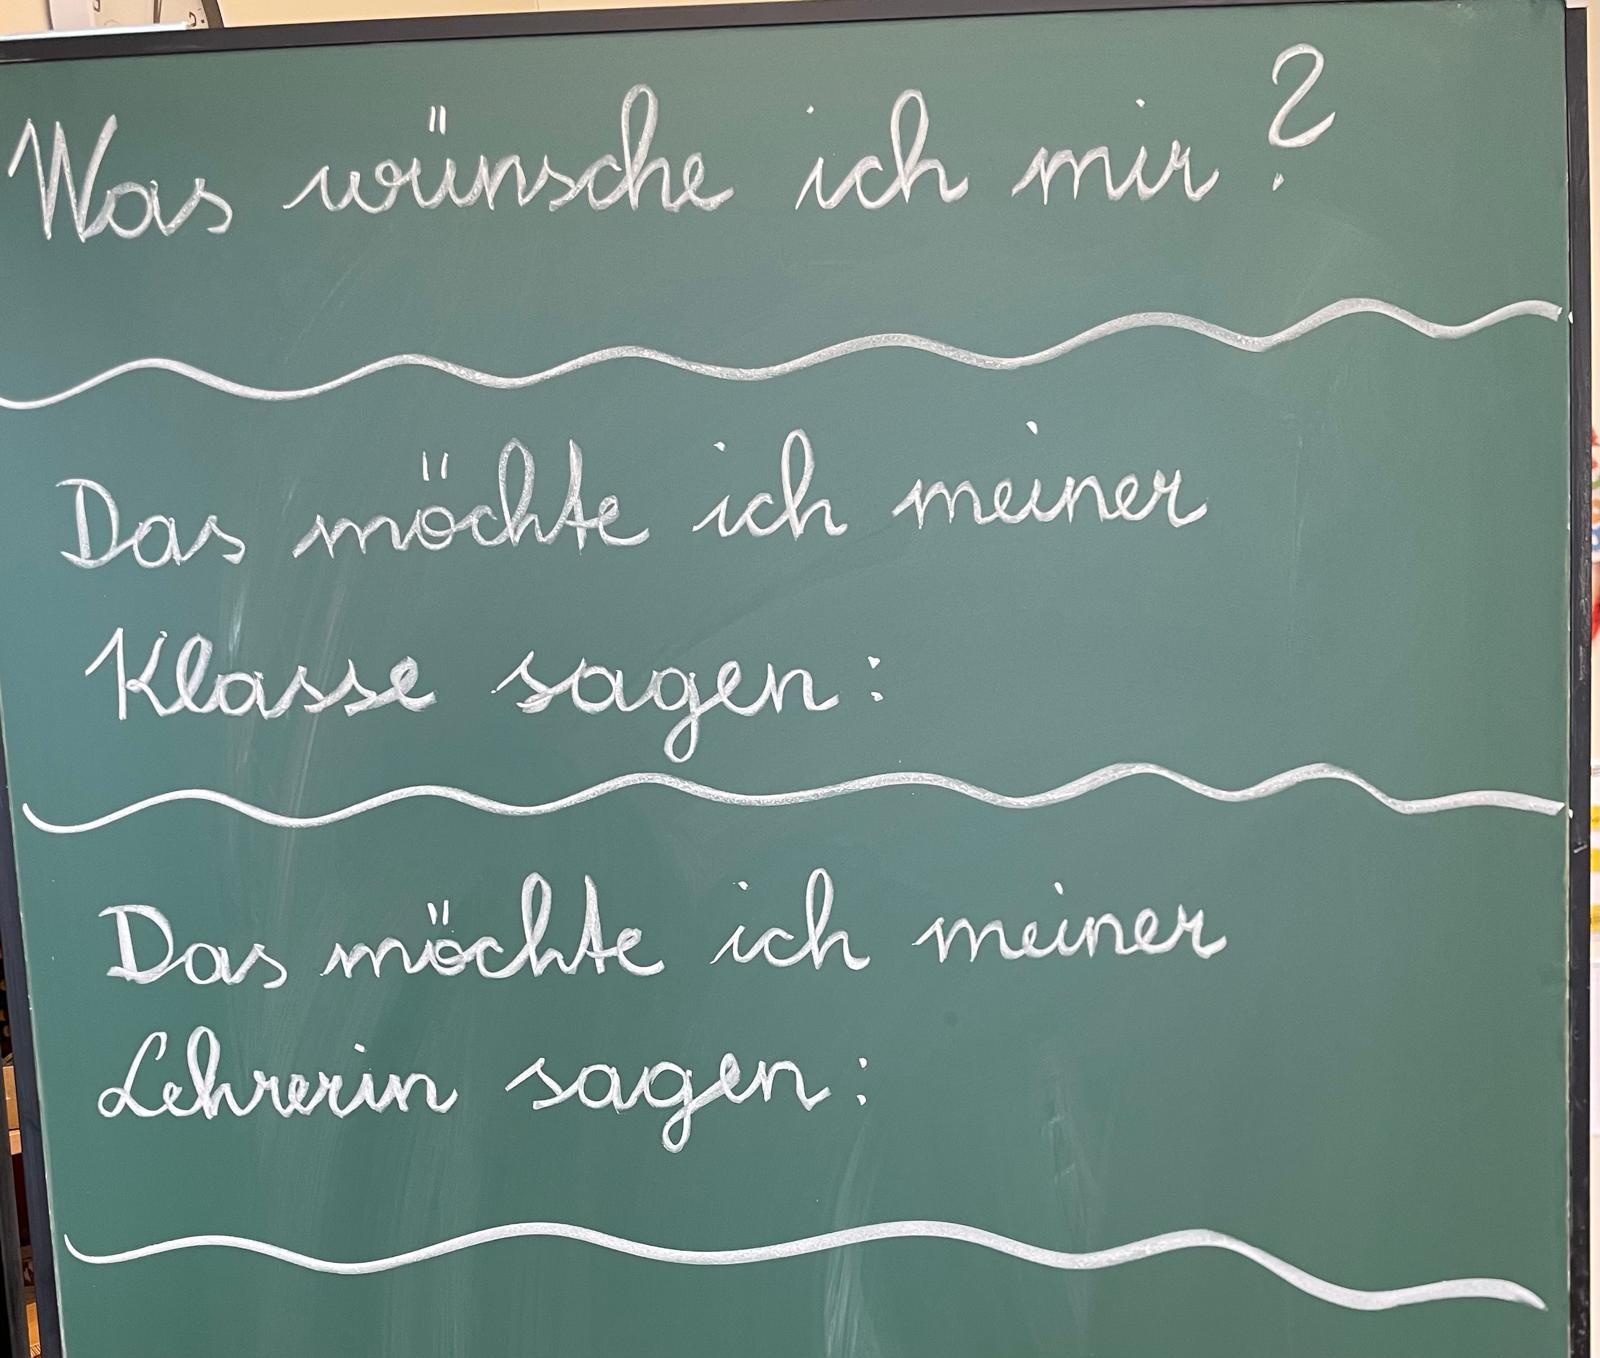 Was wünsche ich mir?
Das möchte ich meiner
Klasse sagen:
Das möchte ich meiner
Lehrerin sagen: